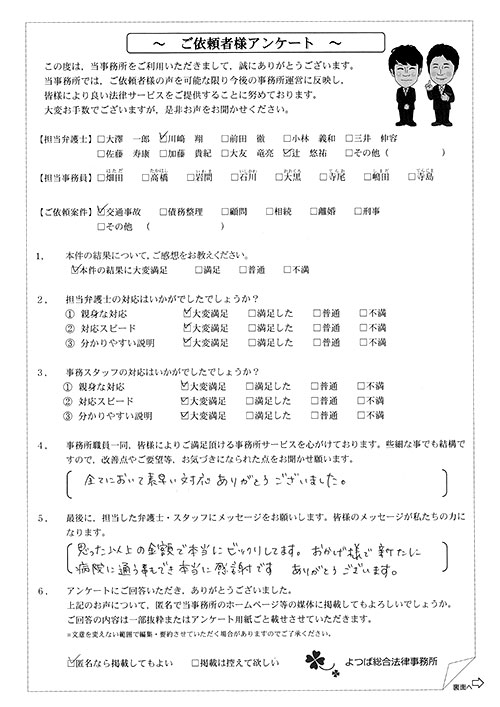 ～ ご依頼者様アンケート ～
この度は、当事務所をご利用いただきまして、誠にありがとうございます。
当事務所では、ご依頼者様の声を可能な限り今後の事務所運営に反映し、
皆様により良い法律サービスをご提供することに努めております。
大変お手数でございますが、是非お声をお聞かせください。
【担当弁護士】□大澤 一郎 ☑川﨑 翔 □前田 徹 □小林 義和 □三井 伸容
□佐藤 寿康 □加藤 貴紀 □大友 竜亮 ☑辻 悠祐 □その他（ ）
【担当事務員】□畑田 □高橋 □岩間 □石川 □大黒 □寺尾 □嶋田 □寺島
【ご依頼案件】☑交通事故 □債務整理 □顧問 □相続 □離婚 □刑事
□その他（ ）
１． 本件の結果について、ご感想をお教えください。
☑本件の結果に大変満足 □満足 □普通 □不満
２． 担当弁護士の対応はいかがでしたでしょうか？
① 親身な対応 ☑大変満足 □満足した □普通 □不満
② 対応スピード ☑大変満足 □満足した □普通 □不満
③ 分かりやすい説明 ☑大変満足 □満足した □普通 □不満
３． 事務スタッフの対応はいかがでしたでしょうか？
① 親身な対応 ☑大変満足 □満足した □普通 □不満
② 対応スピード ☑大変満足 □満足した □普通 □不満
③ 分かりやすい説明 ☑大変満足 □満足した □普通 □不満
４． 事務所職員一同、皆様によりご満足頂ける事務所サービスを心がけております。些細な事でも結構で
すので、改善点やご要望等、お気づきになられた点をお聞かせ願います。
全てにおいて素早い対応ありがとうございました。
５． 最後に、担当した弁護士・スタッフにメッセージをお願いします。皆様のメッセージが私たちの力に
なります。
思った以上の金額で本当にビックリしてます。おかげ様で新たに
病院に通う事もでき本当に感謝です ありがとうございます。
６． アンケートにご回答いただき、ありがとうございました。
上記のお声について、匿名で当事務所のホームページ等の媒体に掲載してもよろしいでしょうか。
ご回答の内容は一部抜粋またはアンケート用紙ごと載せさせていただきます。
※文意を変えない範囲で編集・要約させていただく場合がありますのでご了承ください。
☑匿名なら掲載してもよい □掲載は控えて欲しい よつば総合法律事務所
裏面へ